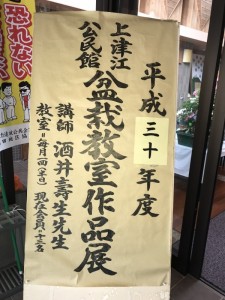 平成三十年度
上津江
公民館
盆栽教室作品展
講師 酒井壽生先生
教室=毎月一回(半日) 現在会員・十三名
恐れない